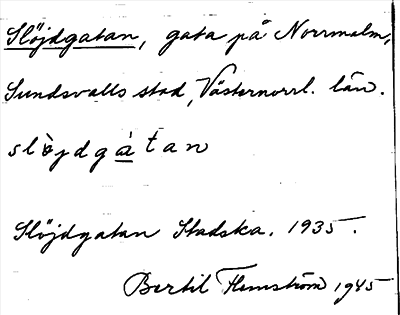 Slöjdgatan, gata på Norrmalm,
Sundsvalls stad, Västernorrl. län.
slòjdgàtan
Slöjdgatan Stadska. 1935.
Bertil Flemström 1945